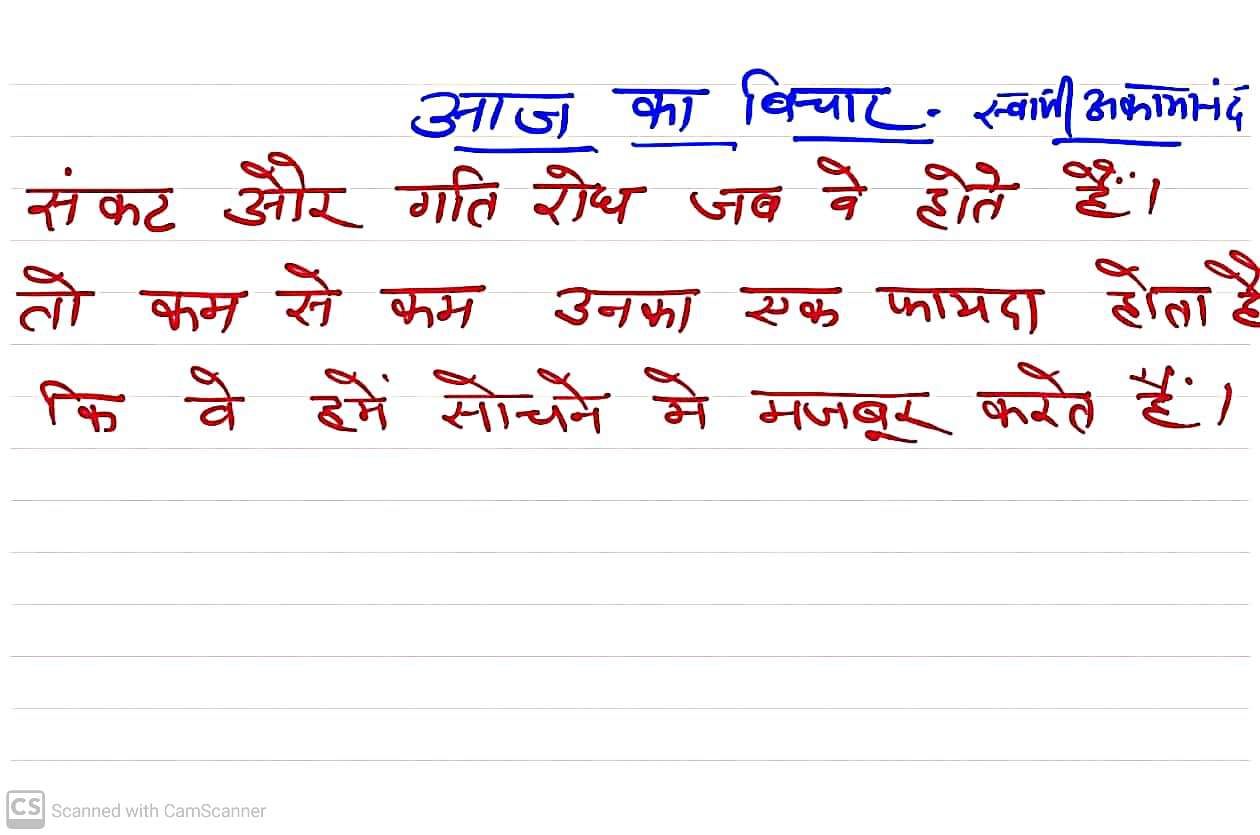 आज का विचार - स्वामी अकामानंद
संकट और गति रोध जब वे होते हैं।
तो कम से कम उनका एक फायदा होता है
कि वे हमें सोचने मे मजबूर करते हैं।
CS Scanned with CamScanner